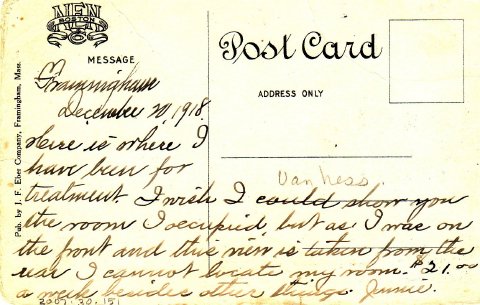 NEN
BOSTON
Post Card
MESSAGE
ADDRESS ONLY
Pub. by J. F. Eber Company, Framingham, Mass.
Framingham
December 20, 1918.
Here is where I
have been for
treatment. I wish I could show you
Van Ness.
the room I occupied, but as I was on
the front and this view is taken from the
rear I cannot locate my room. $21. 00
a week besides other things. Junie.
2007.30.151